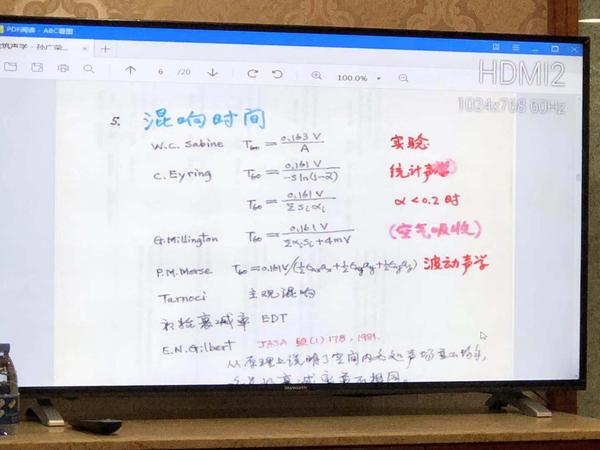 PDF阅读 - ABC看图
筑声学 - 孙广荣...
6 /20
100.0%
HDMI2
1024x768 60Hz
5. 混响时间
W.C. Sabine T60 = 0.163V / A 实验
C. Eyring T60 = 0.161V / -S ln(1-α) 统计声学
T60 = 0.161V / ΣSiαi α<0.2时
G. Millington T60 = 0.161V / ΣαiSi+4mV (空气吸收)
P.M. Morse T60 = 0.161V/(½εxax+½εyay+½εzaz) 波动声学
Tarnoci 主观混响
初始衰减率 EDT
E.N. Gilbert JASA (1) 178, 1981.
从原理上说明了空间内各处声场
衰减率并不相同。
Skyworth